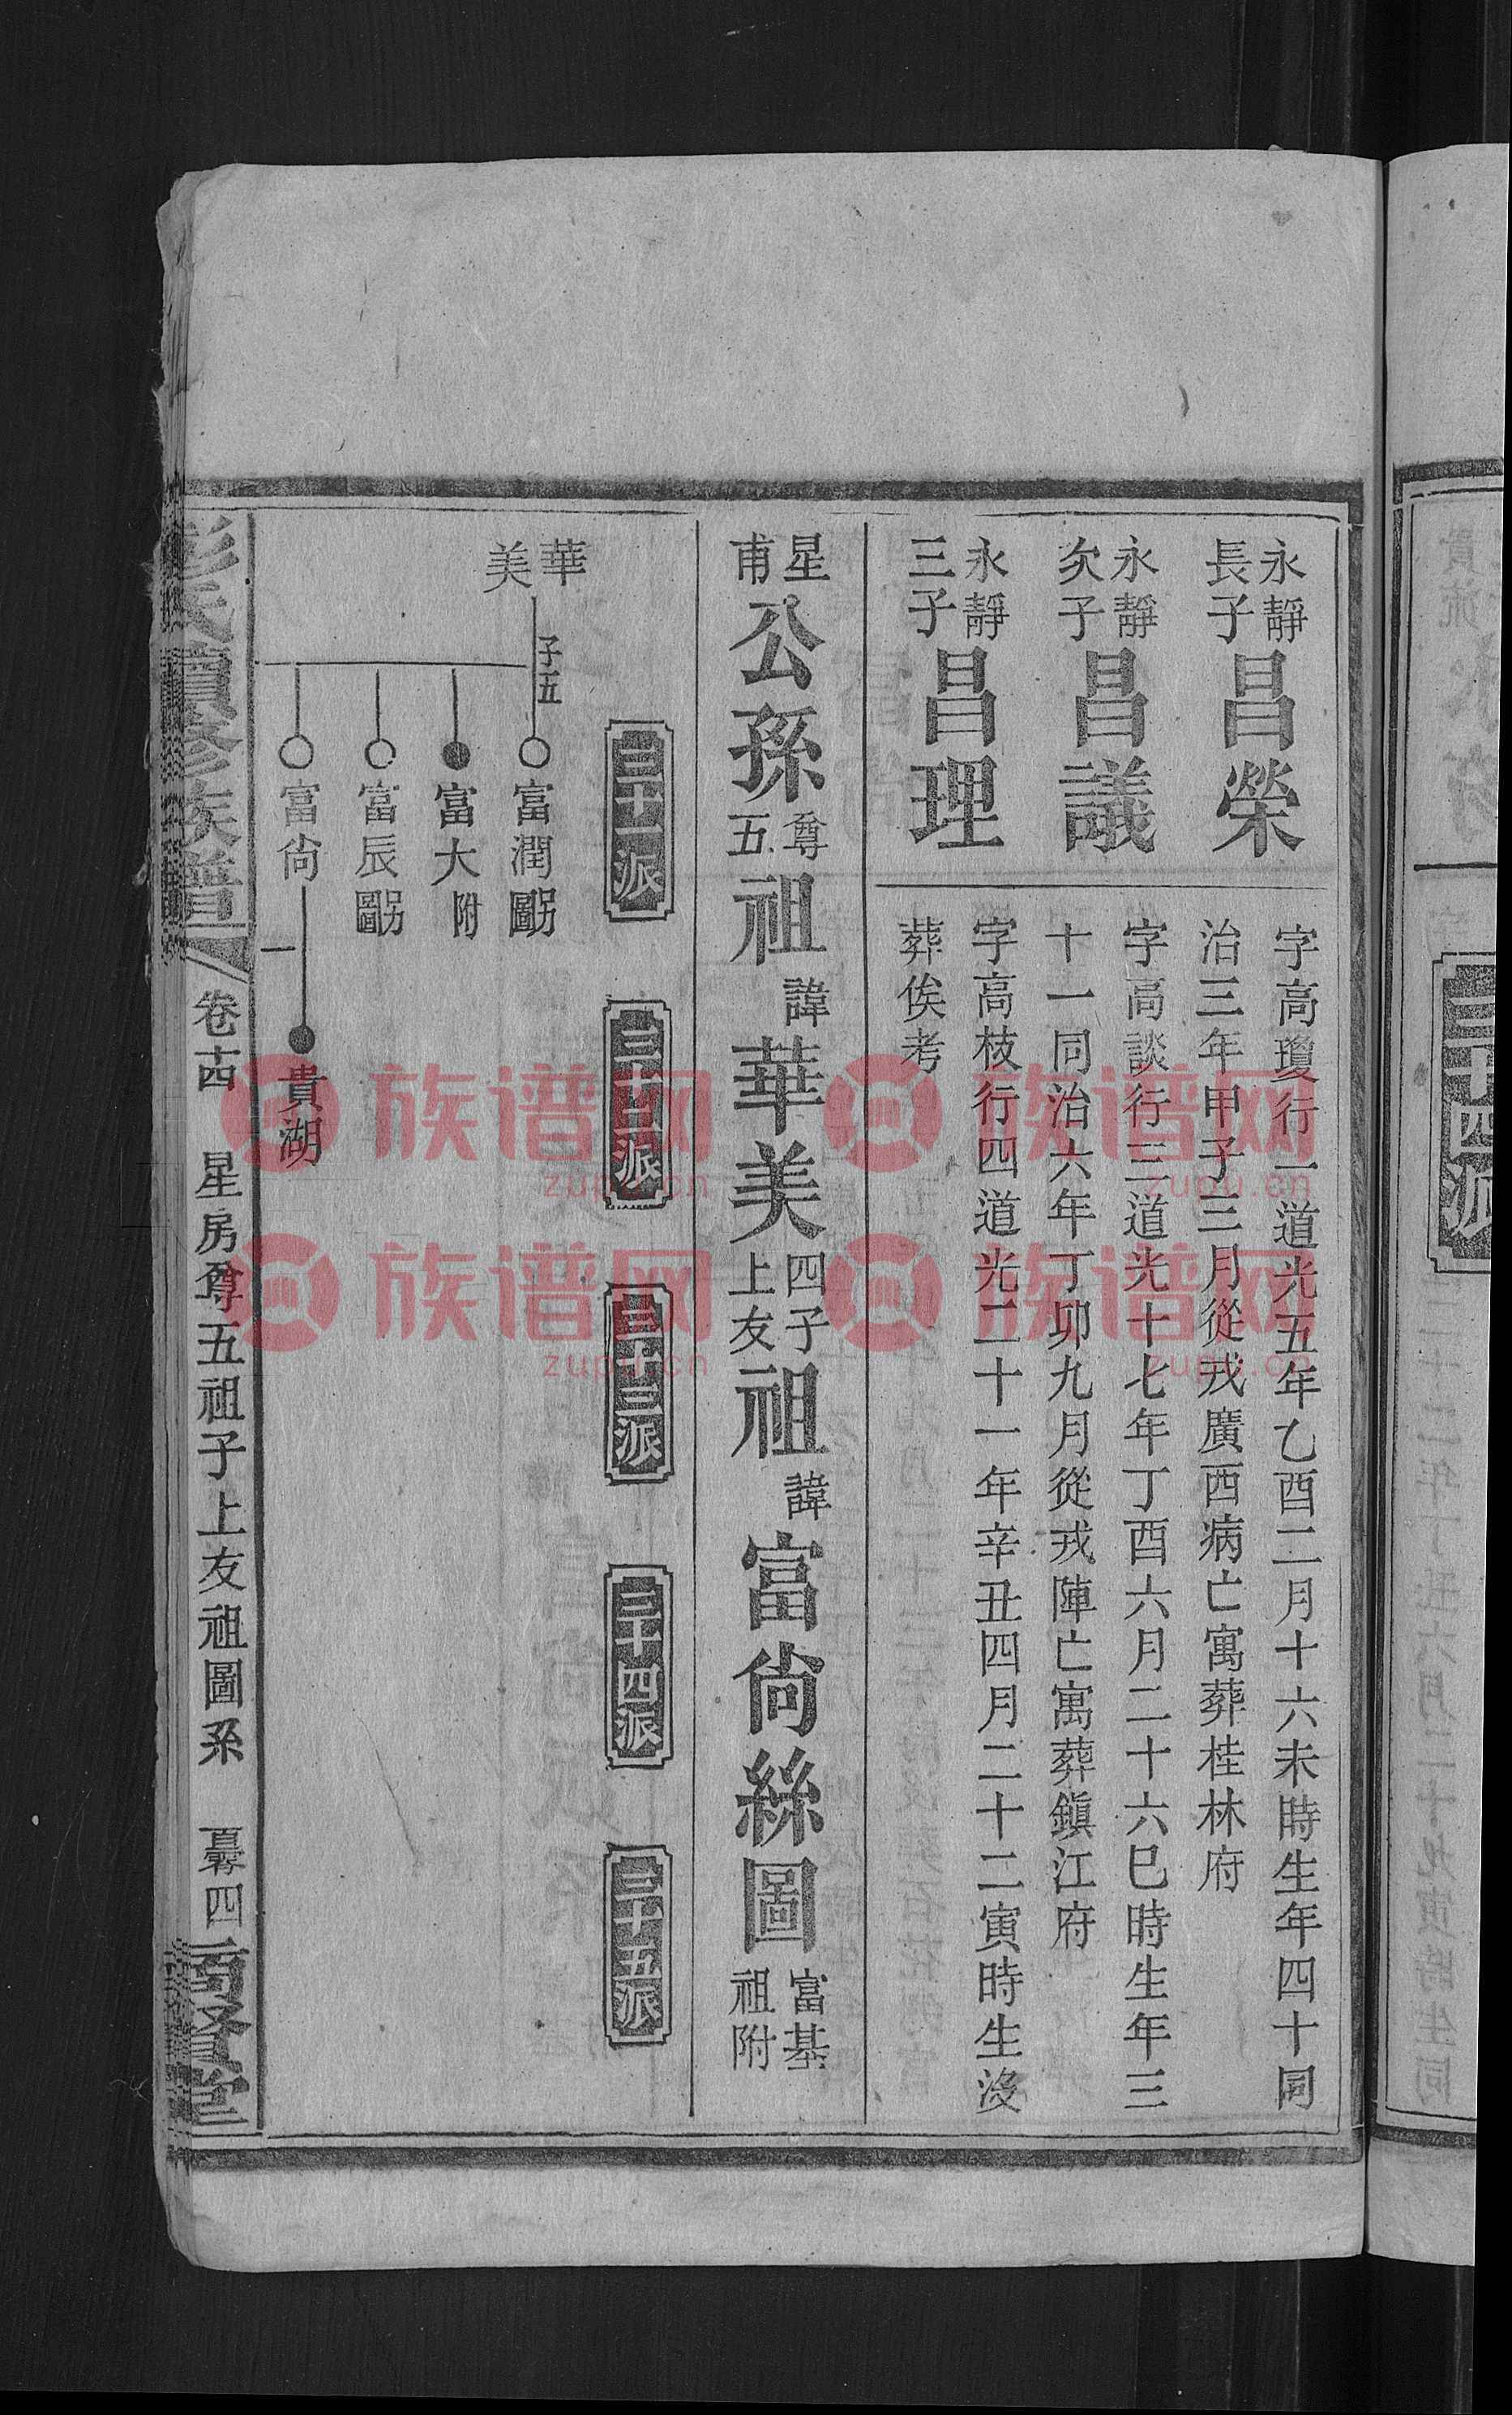 永靜長子昌榮
字高瓊行一道光五年乙酉二月十六未時生年四十同
治三年甲子三月從戎廣西病亡寓葬桂林府
永靜次子昌議
字高談行三道光十七年丁酉六月二十六巳時生年三
十一同治六年丁卯九月從戎陣亡寓葬鎮江府
永靜三子昌理
字高枝行四道光二十一年辛丑四月二十二寅時生沒
葬俟考
星甫公孫尊五祖諱華美四子上友祖諱富尙絲圖富基祖附
三十一派
三十二派
三十三派
三十四派
三十五派
華美
子五
富潤另圖
富大附
富辰另圖
富尙
貴湖
彭氏續修族譜
卷十四
星房尊五祖子上友祖圖系
四
商賢堂
三十四派
族谱网
zupu.cn
族谱网
zupu.cn
族谱网
zupu.cn
族谱网
zupu.cn